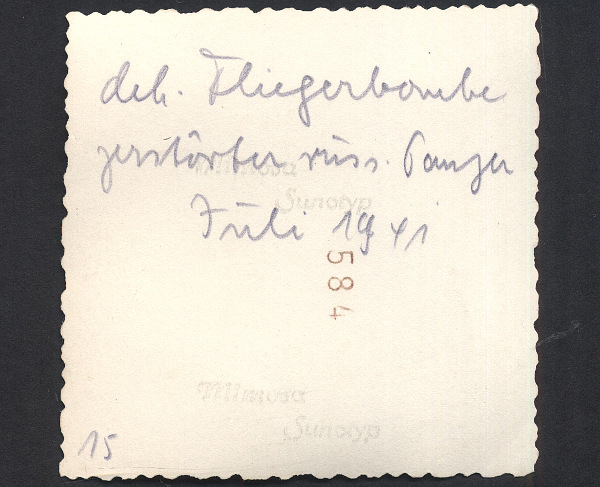 dch. Fliegerbombe
zerstörter russ. Panzer
Mimosa
Sunotyp
Juli 1941
584
Mimosa
Sunotyp
15